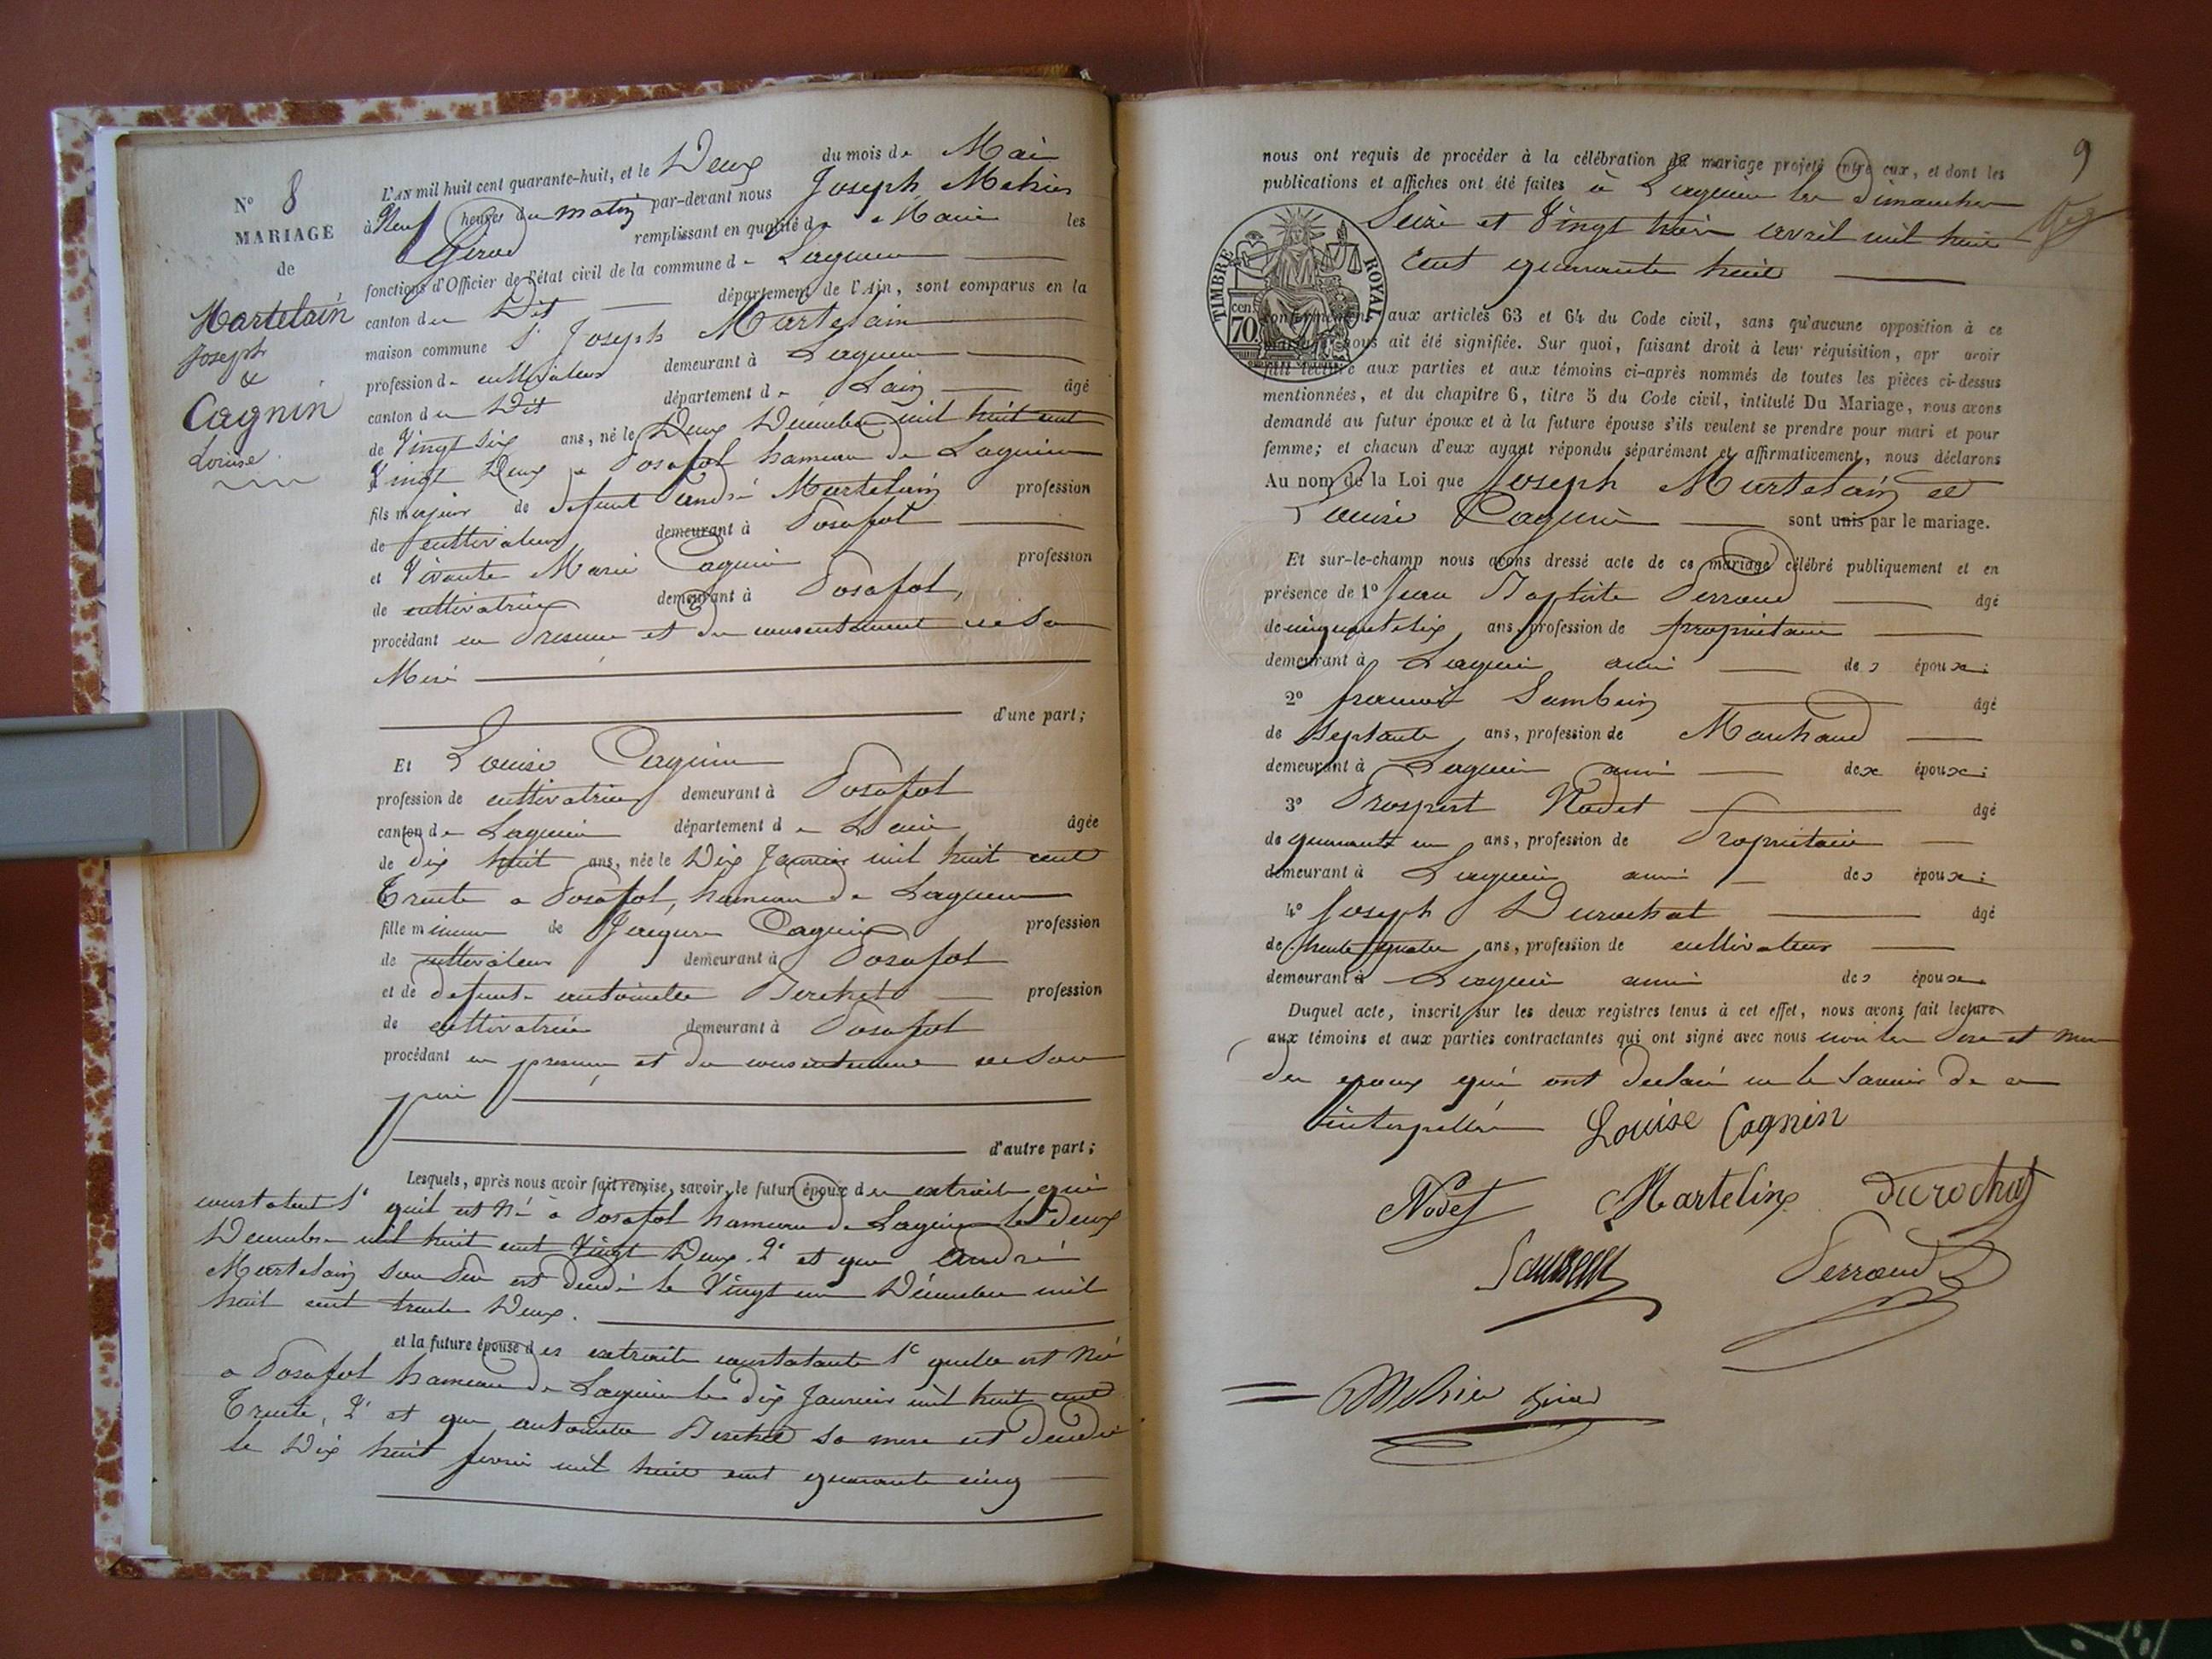 N° 8
MARIAGE
de
Martelain
Joseph
&
Cagnin
Louise
L'AN mil huit cent quarante-huit, et le Deux du mois de Mai
à Neuf heures du matin par-devant nous Joseph Mehier
Girod remplissant en qualité de Maire les
fonctions d'Officier de l'état civil de la commune de Lagnieu
canton du Dit département de l'Ain, sont comparus en la
maison commune Sr Joseph Martelain
profession de cultivateur demeurant à Lagnieu
canton du Dit département de Lain âgé
de Vingt six ans, né le Deux Décembre mil huit cent
Vingt Deux a Posafol hameau de Lagnieu
fils majeur de defunt andré Martelain profession
de cultivateur demeurant à Posafol
et Vivante Marie Cagnin profession
de cultivatrice demeurant à Posafol,
procédant en Presence et du consentement de Sa
Mere
d'une part;
Et Louise Cagnin
profession de cultivatrice demeurant à Posafol
canton de Lagnieu département de Lain âgée
de dix huit ans, née le Dix Janvier mil huit cent
Trente a Posafol, hameau de Lagnieu
fille mineure de Jacques Cagnin profession
de cultivateur demeurant à Posafol
et de defunte antoinette Berchet profession
de cultivatrice demeurant à Posafol
procédant en presence et du consentement de Son
pere
d'autre part;
Lesquels, après nous avoir fait remise, savoir, le futur époux des extraits qui
constatent 1° quil est né à Posafol hameau de Lagnieu le Deux
Decembre mil huit cent Vingt Deux. 2° et que André
Martelain son Pere est Decedé le Vingt un Décembre mil
huit cent trente Deux.
et la future épouse des extraits constatants 1° quelle est Née
a Posafol hameau de Lagnieu le dix Janvier mil huit cent
Trente, 2° et que antoinette Berchet sa mere est Decedée
le Dix huit fevrier mil huit cent quarante cinq
9
nous ont requis de procéder à la célébration du mariage projeté entre eux, et dont les
publications et affiches ont été faites à Lagnieu les Dimanches
Seize et Vingt trois avril mil huit
Cent quarante huit
TIMBRE ROYAL
70 cen.
conformément aux articles 63 et 64 du Code civil, sans qu'aucune opposition à ce
mariage nous ait été signifiée. Sur quoi, faisant droit à leur réquisition, apr avoir
fait lecture aux parties et aux témoins ci-après nommés de toutes les pièces ci-dessus
mentionnées, et du chapitre 6, titre 5 du Code civil, intitulé Du Mariage, nous avons
demandé au futur époux et à la future épouse s'ils veulent se prendre pour mari et pour
femme; et chacun d'eux ayant répondu séparément et affirmativement, nous déclarons
Au nom de la Loi que Joseph Martelain et
Louise Cagnin sont unis par le mariage.
Et sur-le-champ nous avons dressé acte de ce mariage célébré publiquement et en
présence de 1° Jean Baptiste Perroud âgé
de cinquante six ans, profession de propriétaire
demeurant à Lagnieu ami des époux;
2° francois Sambuin âgé
de Septante ans, profession de Marchand
demeurant à Lagnieu ami des époux;
3° Prospert Nodet âgé
de quarante un ans, profession de Propriétaire
demeurant à Lagnieu ami des époux;
4° Joseph Durochat âgé
de trente quatre ans, profession de cultivateur
demeurant à Lagnieu ami des époux
Duquel acte, inscrit sur les deux registres tenus à cet effet, nous avons fait lecture
aux témoins et aux parties contractantes qui ont signé avec nous non les Pere et mere
des epoux qui ont declaré ne le Savoir de ce
interpellés Louise Cagnin
Nodet Martelin Durochat
Perroud
Mehier Girod